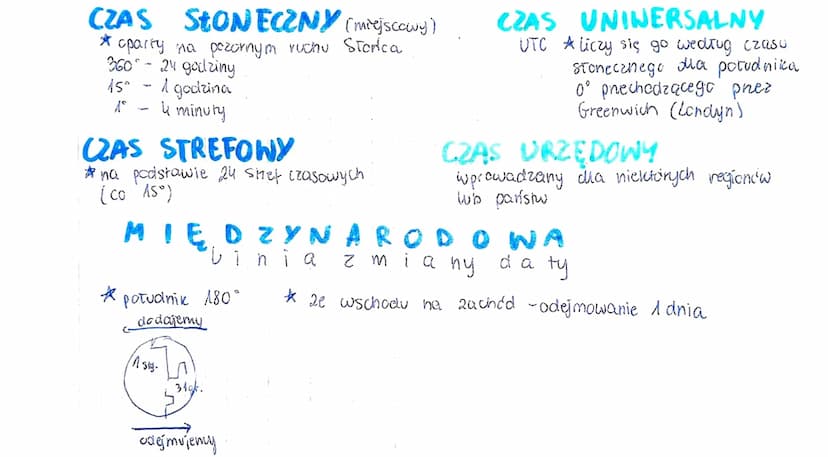 CZAS SŁONECZNY (miejscowy)
* oparty na pozornym ruchu Słońca
360° - 24 godziny
15° - 1 godzina
1° - 4 minuty
CZAS UNIWERSALNY
UTC * liczy się go według czasu
słonecznego dla południka
0° przechodzącego przez
Greenwich (Londyn)
CZAS STREFOWY
* na podstawie 24 stref czasowych
(co 15°)
CZAS URZĘDOWY
wprowadzany dla niektórych regionów
lub państw
MIĘDZYNARODOWA
linia zmiany daty
* południk 180°
* ze wschodu na zachód - odejmowanie 1 dnia
dodajemy
1 sty.
31 gr.
odejmujemy